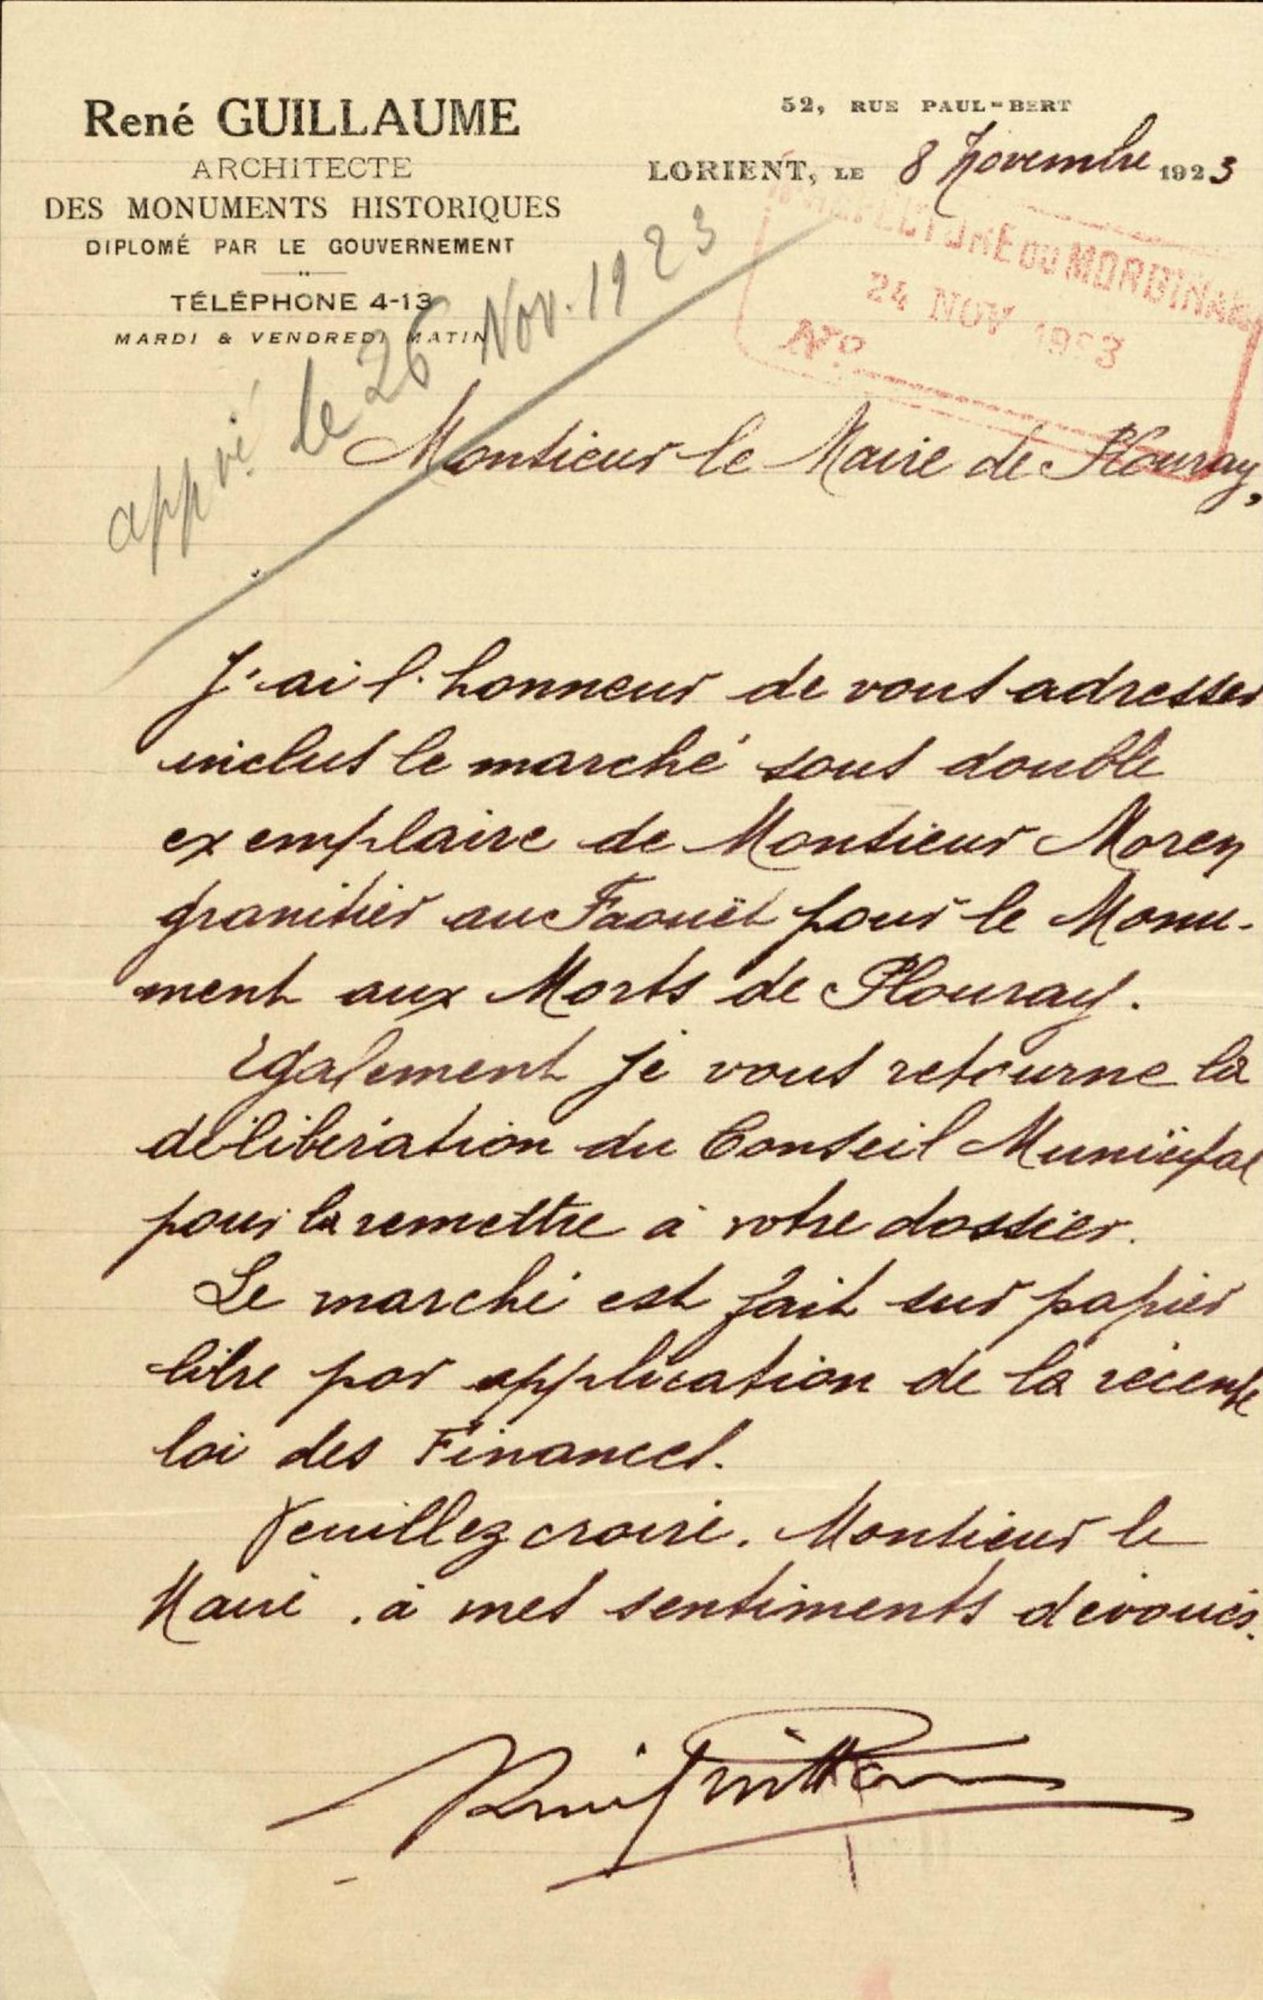 René GUILLAUME
ARCHITECTE
DES MONUMENTS HISTORIQUES
DIPLOMÉ PAR LE GOUVERNEMENT
TÉLÉPHONE 4-13
MARDI & VENDREDI MATIN
52, RUE PAUL-BERT
LORIENT, LE 8 Novembre 1923
PREFECTURE DU MORBIHAN
24 NOV 1923
N°
appvé le 26 Nov. 1923
Monsieur le Maire de Plouray,
J'ai l'honneur de vous adresser
inclus le marché sous double
exemplaire de Monsieur Moren
granitier au Faouët pour le Monu-
ment aux Morts de Plouray.
Egalement je vous retourne la
délibération du Conseil Municipal
pour la remettre à votre dossier.
Le marché est fait sur papier
libre par application de la récente
loi des Finances.
Veuillez croire, Monsieur le
Maire, à mes sentiments dévoués.
René Guillaume